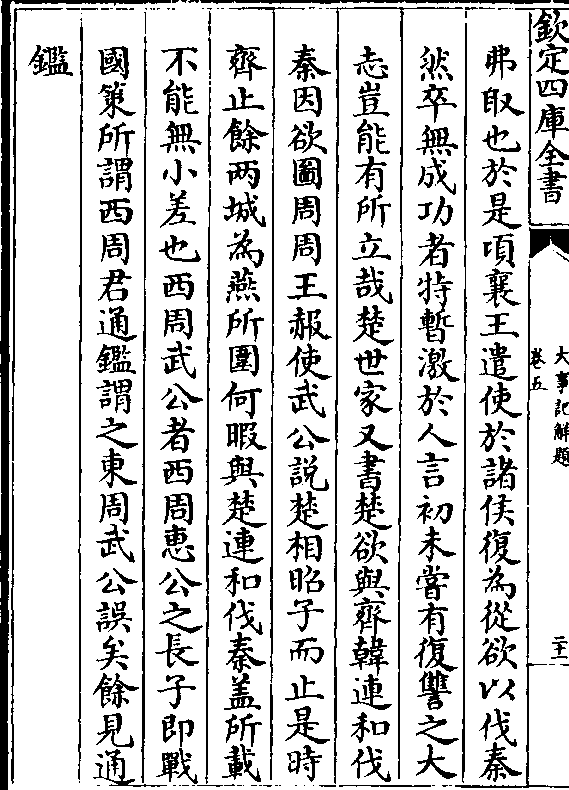 欽定四庫全書
大事記解題
卷五
二十一
弗取也於是頃襄王遣使於諸侯復為從欲以伐秦
然卒無成功者特暫激於人言初未嘗有復讐之大
志豈能有所立哉楚世家又書楚欲與齊韓連和伐
秦因欲圖周周王赧使武公說楚相昭子而止是時
齊止餘兩城為燕所圍何暇與楚連和伐秦盖所載
不能無小差也西周武公者西周惠公之長子即戰
國策所謂西周君通鑑謂之東周武公誤矣餘見通
鑑